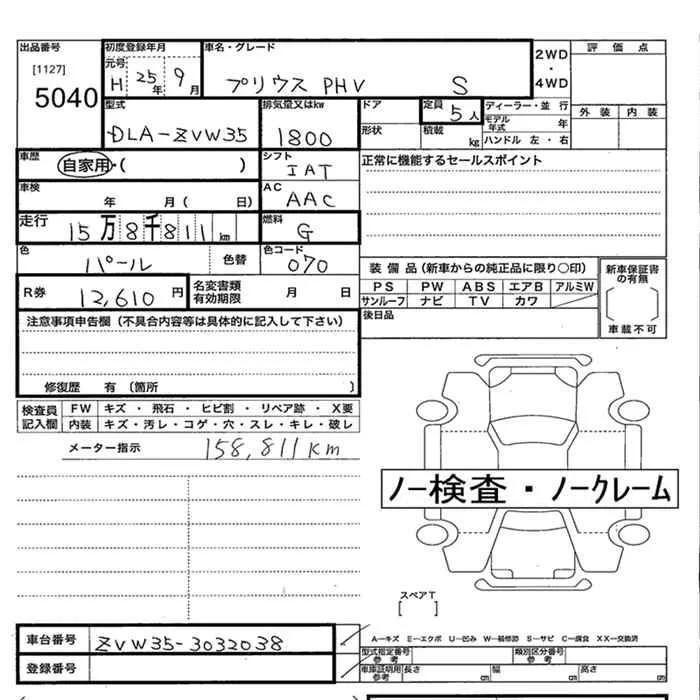 出品番号 初度登録年月 車名・グレード 2WD・4WD 評価点
[1127] 元号
5040 H 25年 9月 プリウス PHV S
型式 排気量又はkw ドア 定員 5人 ディーラー・並行 外装 内装
DLA-ZVW35 1800 形状 積載 kg モデル年式 年
ハンドル 左・右
車歴 自家用・( ) シフト IAT 正常に機能するセールスポイント
車検 年 月( 日) AC AAC
走行 15万8千811km 燃料 G
色 パール 色替 色コード 070
装備品(新車からの純正品に限り○印) 新車保証書の有無
R券 12,610円 名変書類有効期限 月 日 PS PW ABS エアB アルミW
サンルーフ ナビ TV カワ
注意事項申告欄(不具合内容等は具体的に記入して下さい) 後日品 車載不可
修復歴 有(箇所 )
検査員記入欄 FW キズ・飛石・ヒビ割・リペア跡・X要
内装 キズ・汚レ・コゲ・穴・スレ・キレ・破レ
メーター指示 158,811km
ノー検査・ノークレーム
スペアT
[ ]
車台番号 ZVW35-3032038 A―キズ E―エクボ U―凹み W―補修跡 S―サビ C―腐食 XX―交換済
型式指定番号 参考 類別区分番号 参考
登録番号 車庫証明用 参考 長さ cm 幅 cm 高さ cm